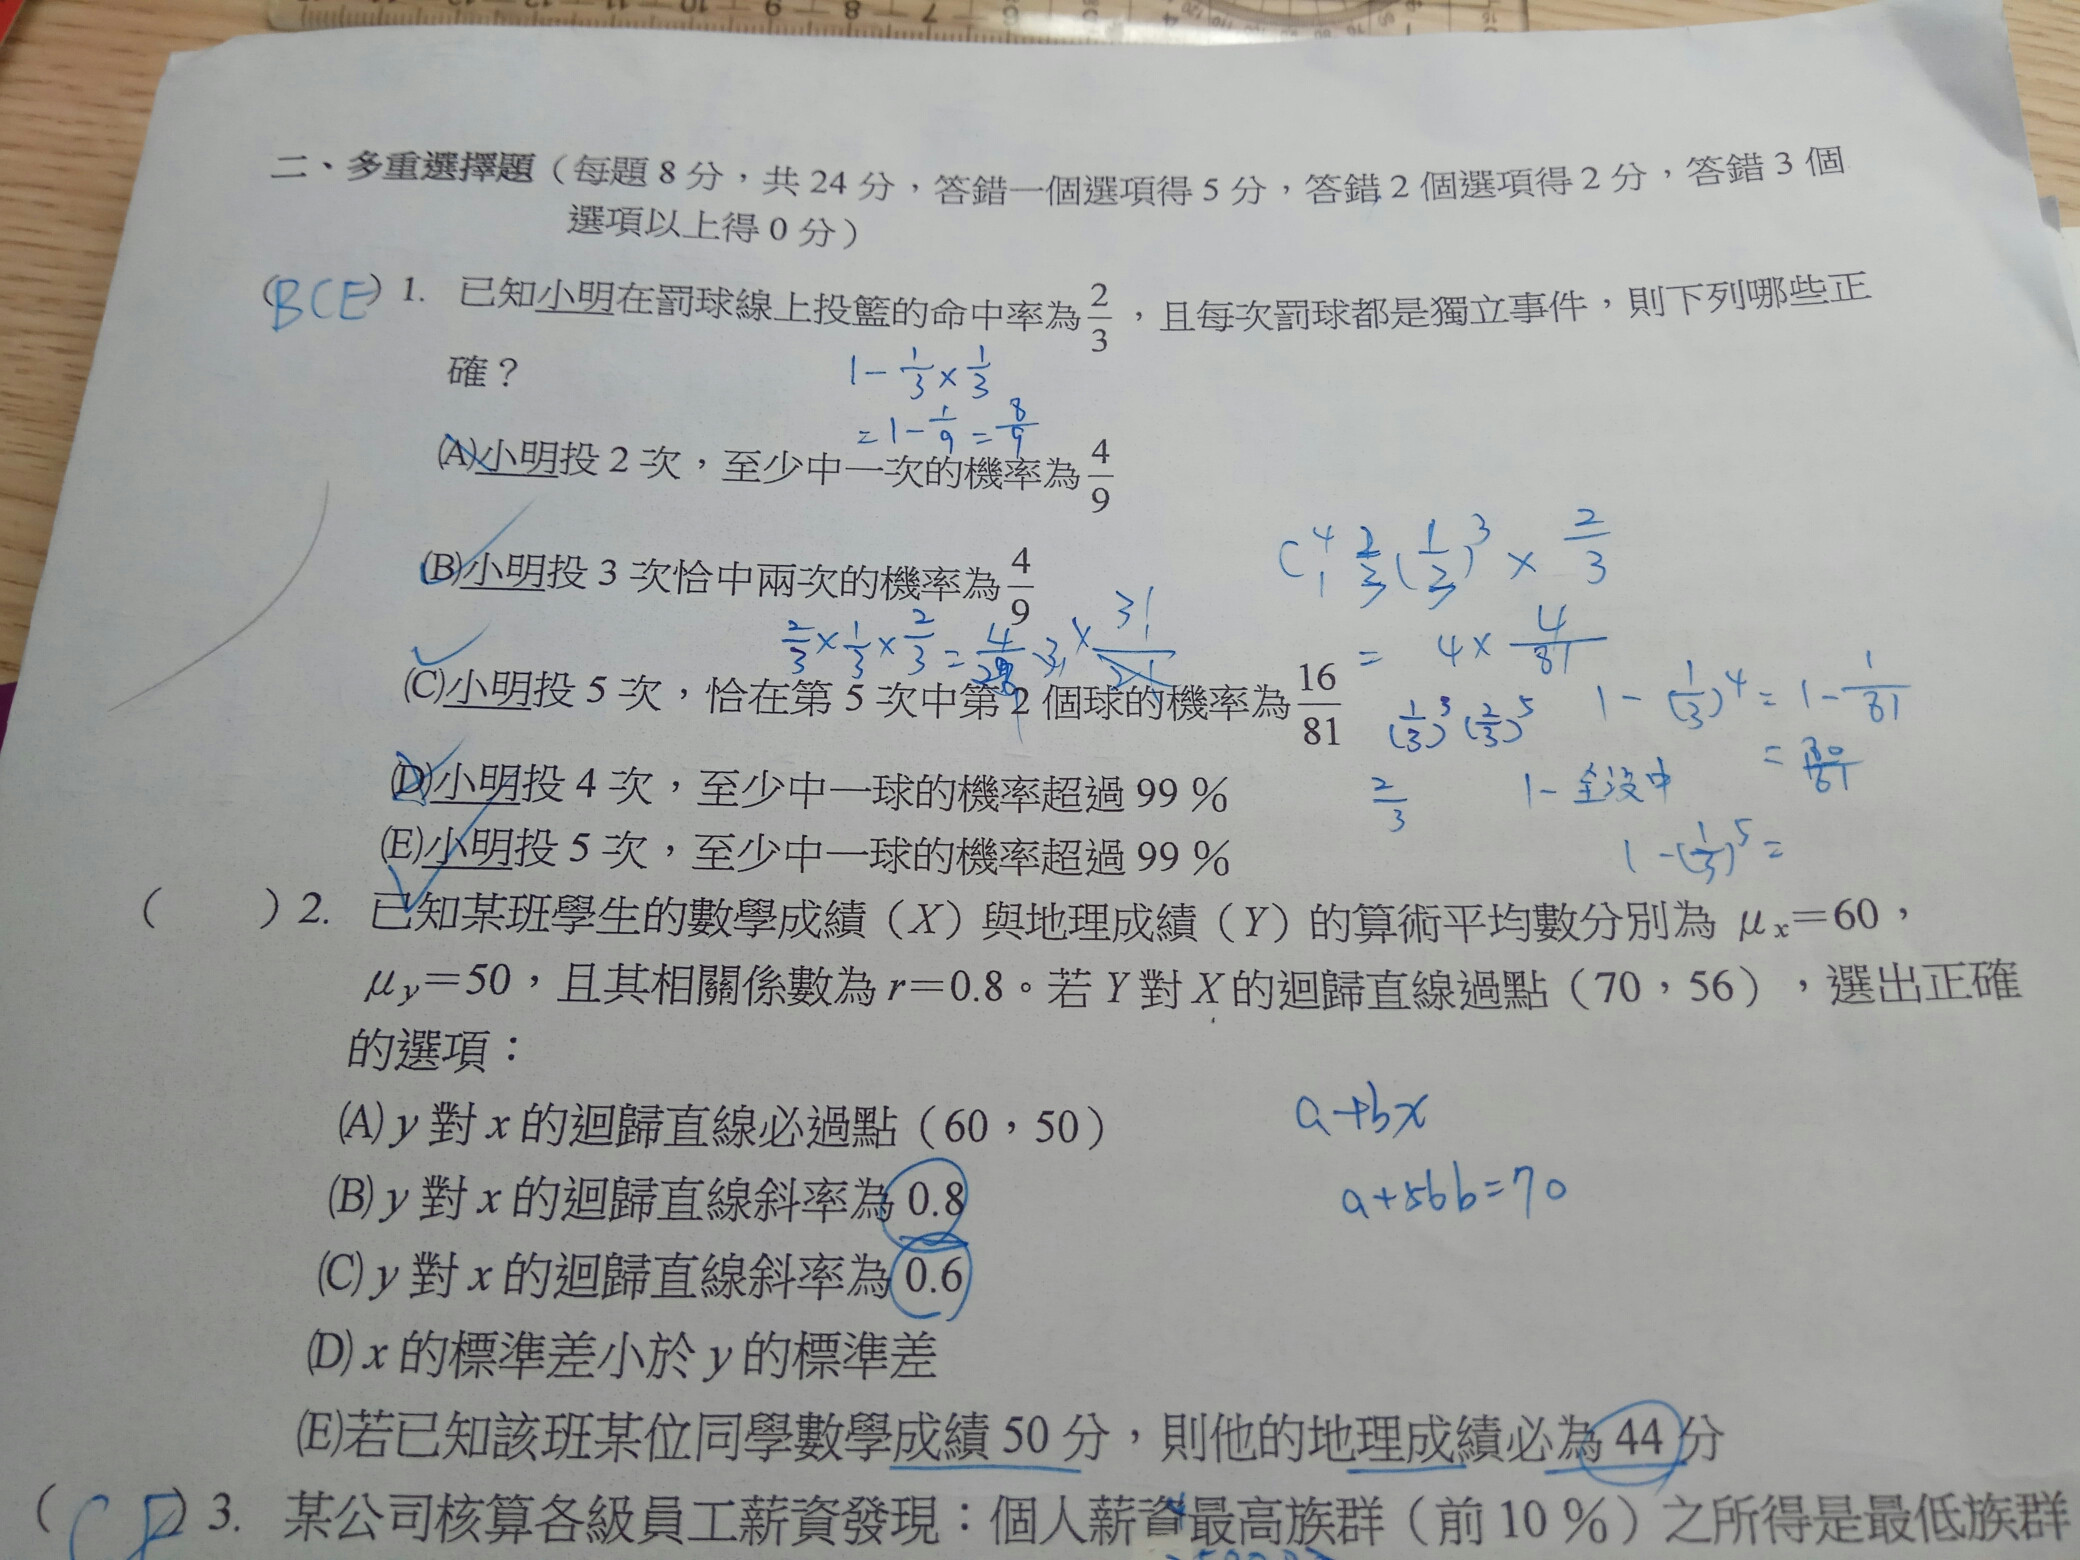 二、多重選擇題（每題 8 分，共 24 分，答錯一個選項得 5 分，答錯 2 個選項得 2 分，答錯 3 個
選項以上得 0 分）
(BCE) 1. 已知小明在罰球線上投籃的命中率為 2/3，且每次罰球都是獨立事件，則下列哪些正
確？
1 - 1/3 × 1/3
= 1 - 1/9 = 8/9
(A)小明投 2 次，至少中一次的機率為 4/9
(B)小明投 3 次恰中兩次的機率為 4/9
C⁴₁ 2/3 (1/3)³ × 2/3
= 4 × 4/81
2/3 × 1/3 × 2/3 =
(C)小明投 5 次，恰在第 5 次中第 2 個球的機率為 16/81
(1/3)³ (2/3)⁵
1 - (1/3)⁴ = 1 - 1/81
= 80/81
(D)小明投 4 次，至少中一球的機率超過 99 %
2/3
1 - 全沒中
(E)小明投 5 次，至少中一球的機率超過 99 %
1 - (1/3)⁵ =
（　　）2. 已知某班學生的數學成績（X）與地理成績（Y）的算術平均數分別為 μx＝60，
μy＝50，且其相關係數為 r＝0.8。若 Y 對 X 的迴歸直線過點（70，56），選出正確
的選項：
(A) y 對 x 的迴歸直線必過點（60，50）
a+bx
(B) y 對 x 的迴歸直線斜率為 0.8
a+56b=70
(C) y 對 x 的迴歸直線斜率為 0.6
(D) x 的標準差小於 y 的標準差
(E)若已知該班某位同學數學成績 50 分，則他的地理成績必為 44 分
3. 某公司核算各級員工薪資發現：個人薪資最高族群（前 10 %）之所得是最低族群